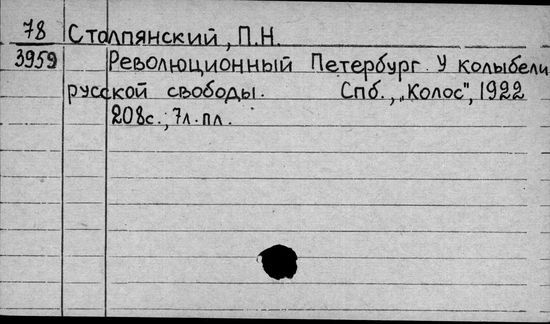 78 Столпянский, П.Н.
3959 Революционный Петербург. У колыбели
русской свободы. Спб., „Колос", 1922
208с.; 7л. пл.